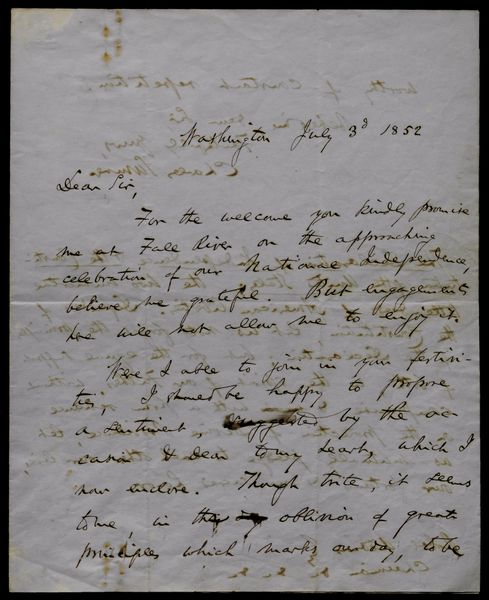 Washington July 3d 1852
Dear Sir,
For the welcome you kindly promise
me at Fall River on the approaching
celebration of our National Independence,
believe me grateful. But engagements
here will not allow me to enjoy it.
Were I able to join in your festivi-
ties, I should be happy to propose
a sentiment, suggested by the oc-
casion & dear to my heart, which I
now enclose. Though trite, it seems
to me, in the oblivion of great
principles which marks our day, to be